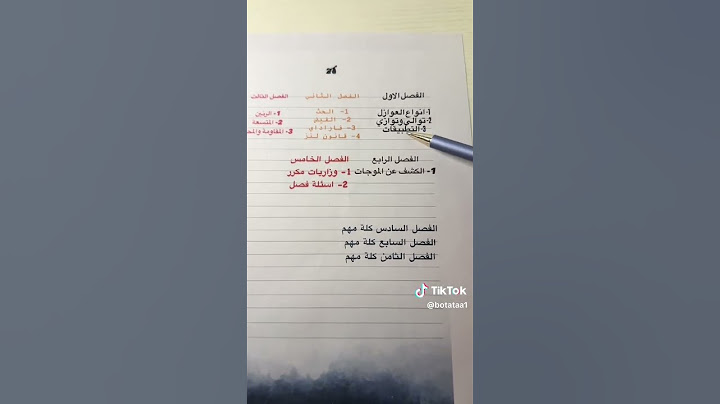 الفصل الاول
1- انواع العوازل
2- توالي وتوازي
3- التطبيقات
الفصل الثاني
1- الحث
2- الفيض
3- فاراداي
4- قانون لنز
الفصل الثالث
1- الرنين
2- المتسعة
3- المقاومة
الفصل الرابع
1- الكشف عن الموجات
الفصل الخامس
1- وزاريات مكرر
2- اسئلة فصل
الفصل السادس كلة مهم
الفصل السابع كلة مهم
الفصل الثامن كلة مهم
TikTok
@botataa1